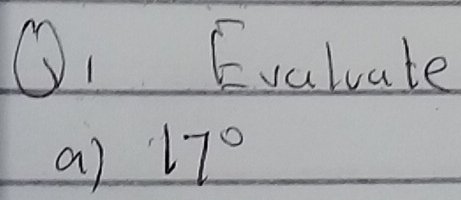 Q1 Evaluate
a) 17⁰